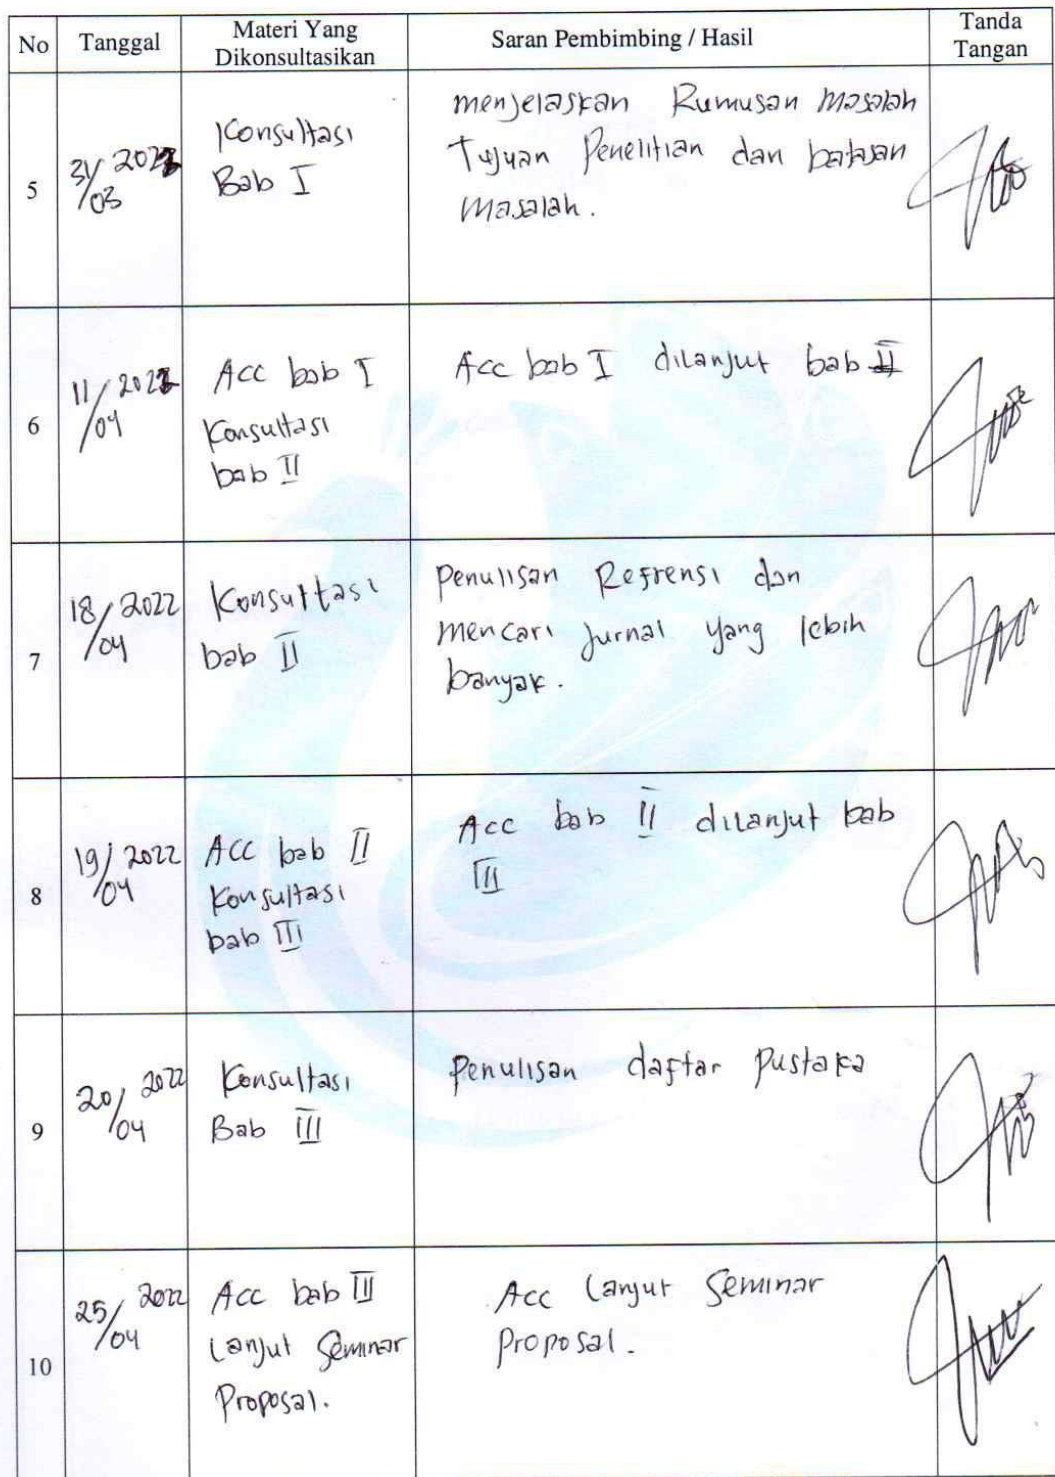 No Tanggal Materi Yang Dikonsultasikan Saran Pembimbing / Hasil Tanda Tangan
5
31/03 2022
Konsultasi
Bab I
menjelaskan Rumusan Masalah
Tujuan Penelitian dan batasan
Masalah.
6
11/04 2022
Acc bab I
Konsultasi
bab II
Acc bab I dilanjut bab II
7
18/04 2022
Konsultasi
bab II
Penulisan Refrensi dan
mencari Jurnal yang lebih
banyak.
8
19/04 2022
Acc bab II
Konsultasi
bab III
Acc bab II dilanjut bab
III
9
20/04 2022
Konsultasi
Bab III
Penulisan daftar Pustaka
10
25/04 2022
Acc bab III
Lanjut Seminar
Proposal.
Acc Lanjut Seminar
Proposal.